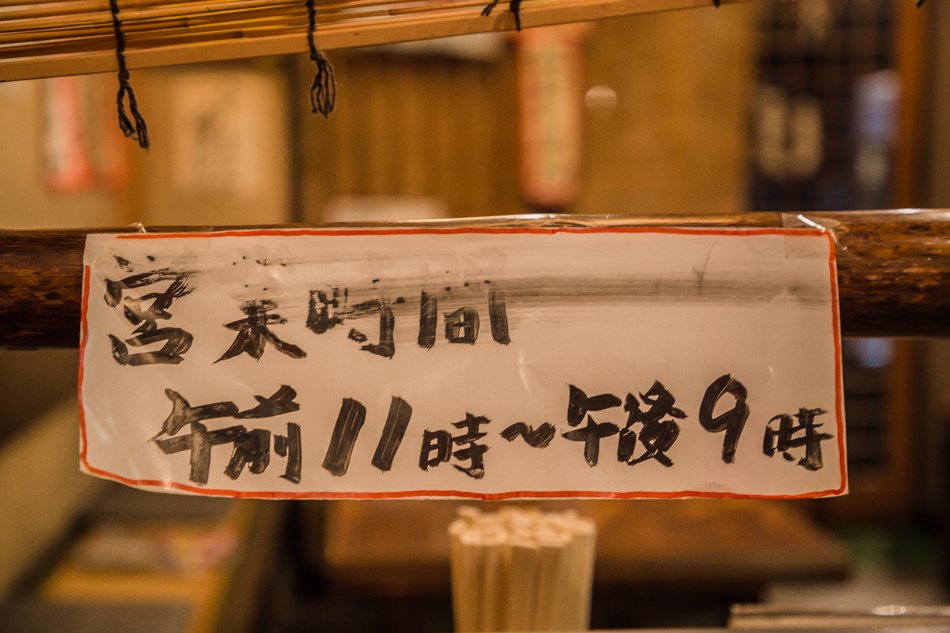 営業時間
午前11時~午後9時